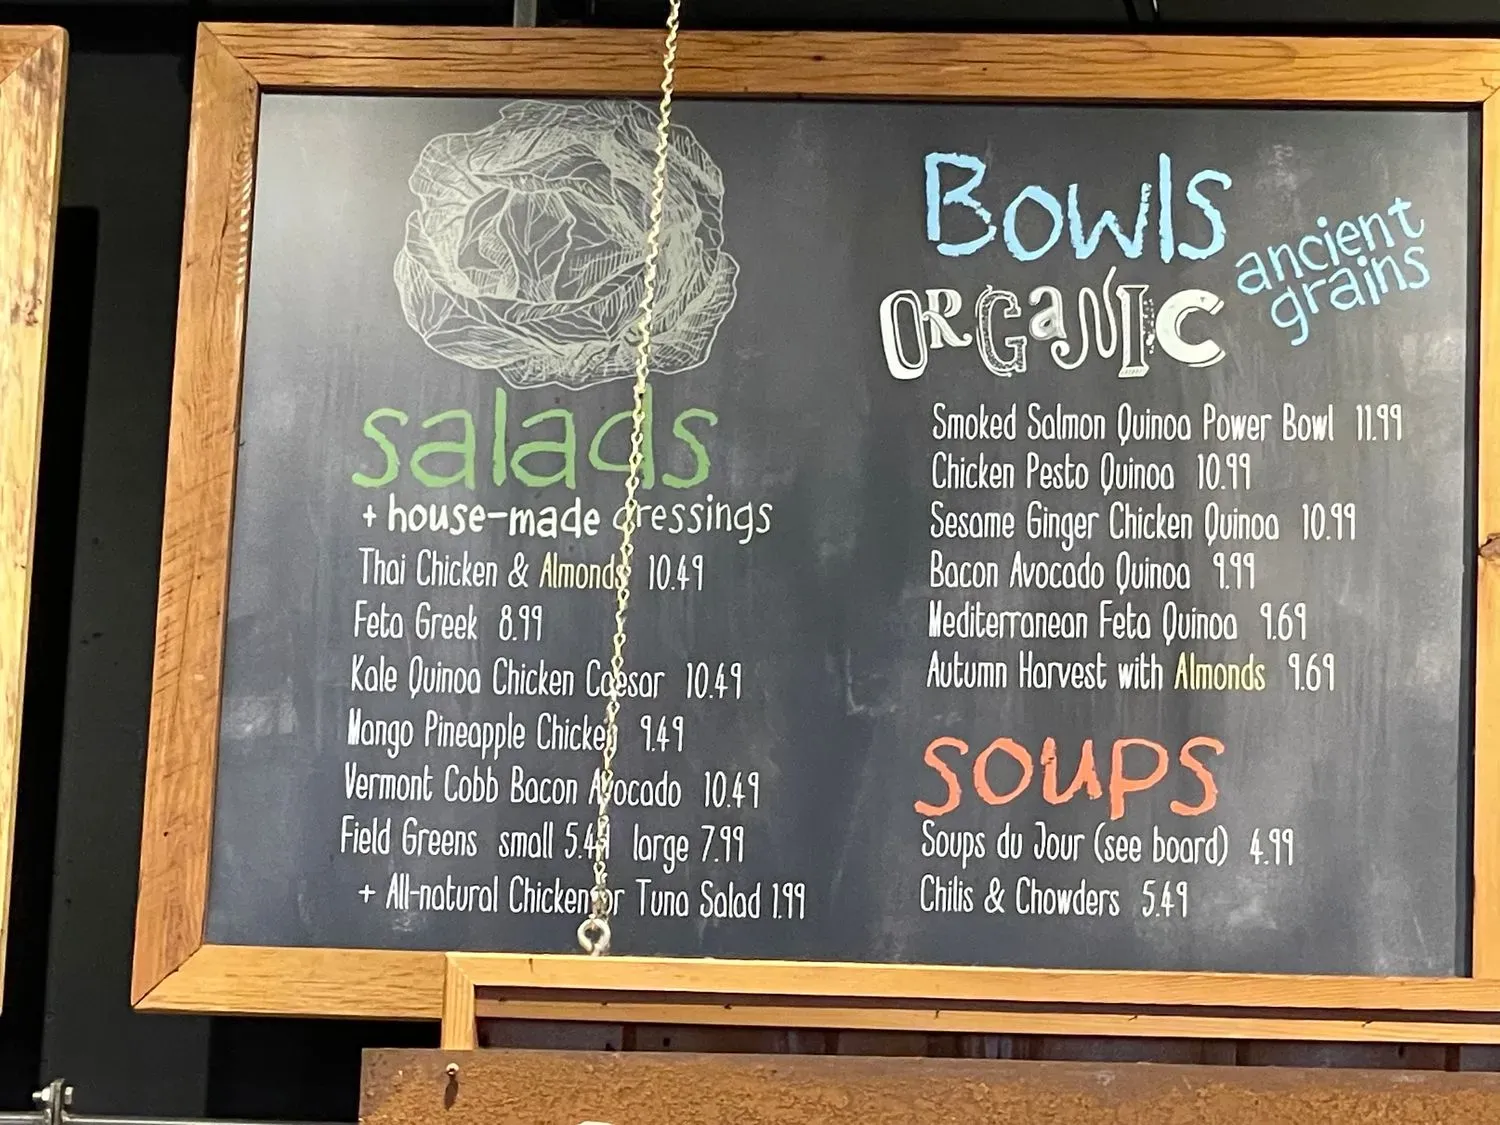 salads
+ house-made dressings
Thai Chicken & Almonds 10.49
Feta Greek 8.99
Kale Quinoa Chicken Caesar 10.49
Mango Pineapple Chicken 9.49
Vermont Cobb Bacon Avocado 10.49
Field Greens small 5.49 large 7.99
+ All-natural Chicken or Tuna Salad 1.99
Bowls
ancient
grains
ORGaNIC
Smoked Salmon Quinoa Power Bowl 11.99
Chicken Pesto Quinoa 10.99
Sesame Ginger Chicken Quinoa 10.99
Bacon Avocado Quinoa 9.99
Mediterranean Feta Quinoa 9.69
Autumn Harvest with Almonds 9.69
soups
Soups du Jour (see board) 4.99
Chilis & Chowders 5.49